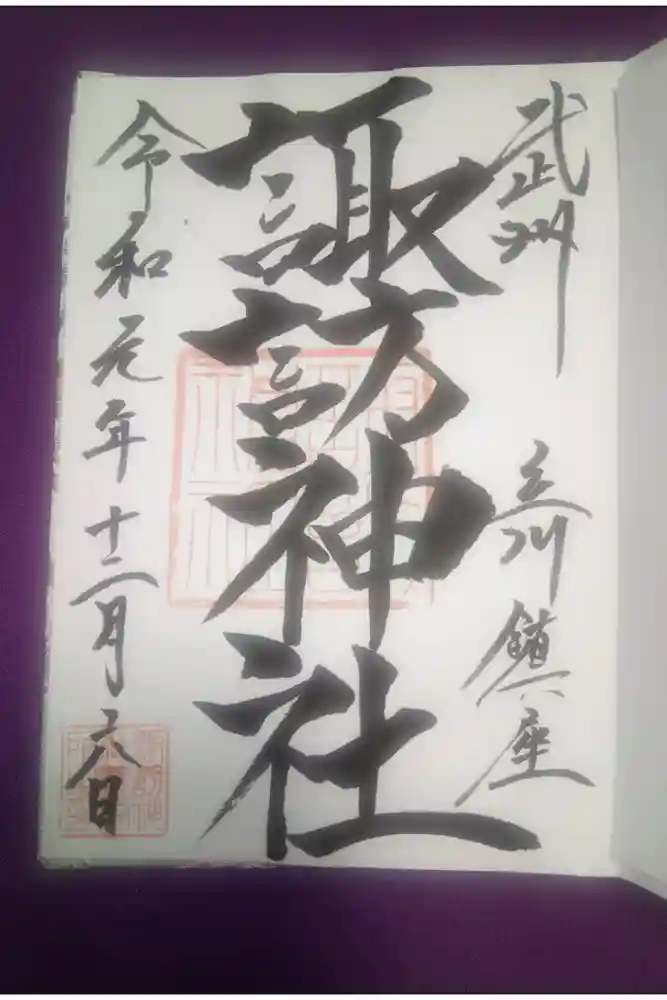 武州 立川鎮座
諏訪神社
令和元年十二月六日